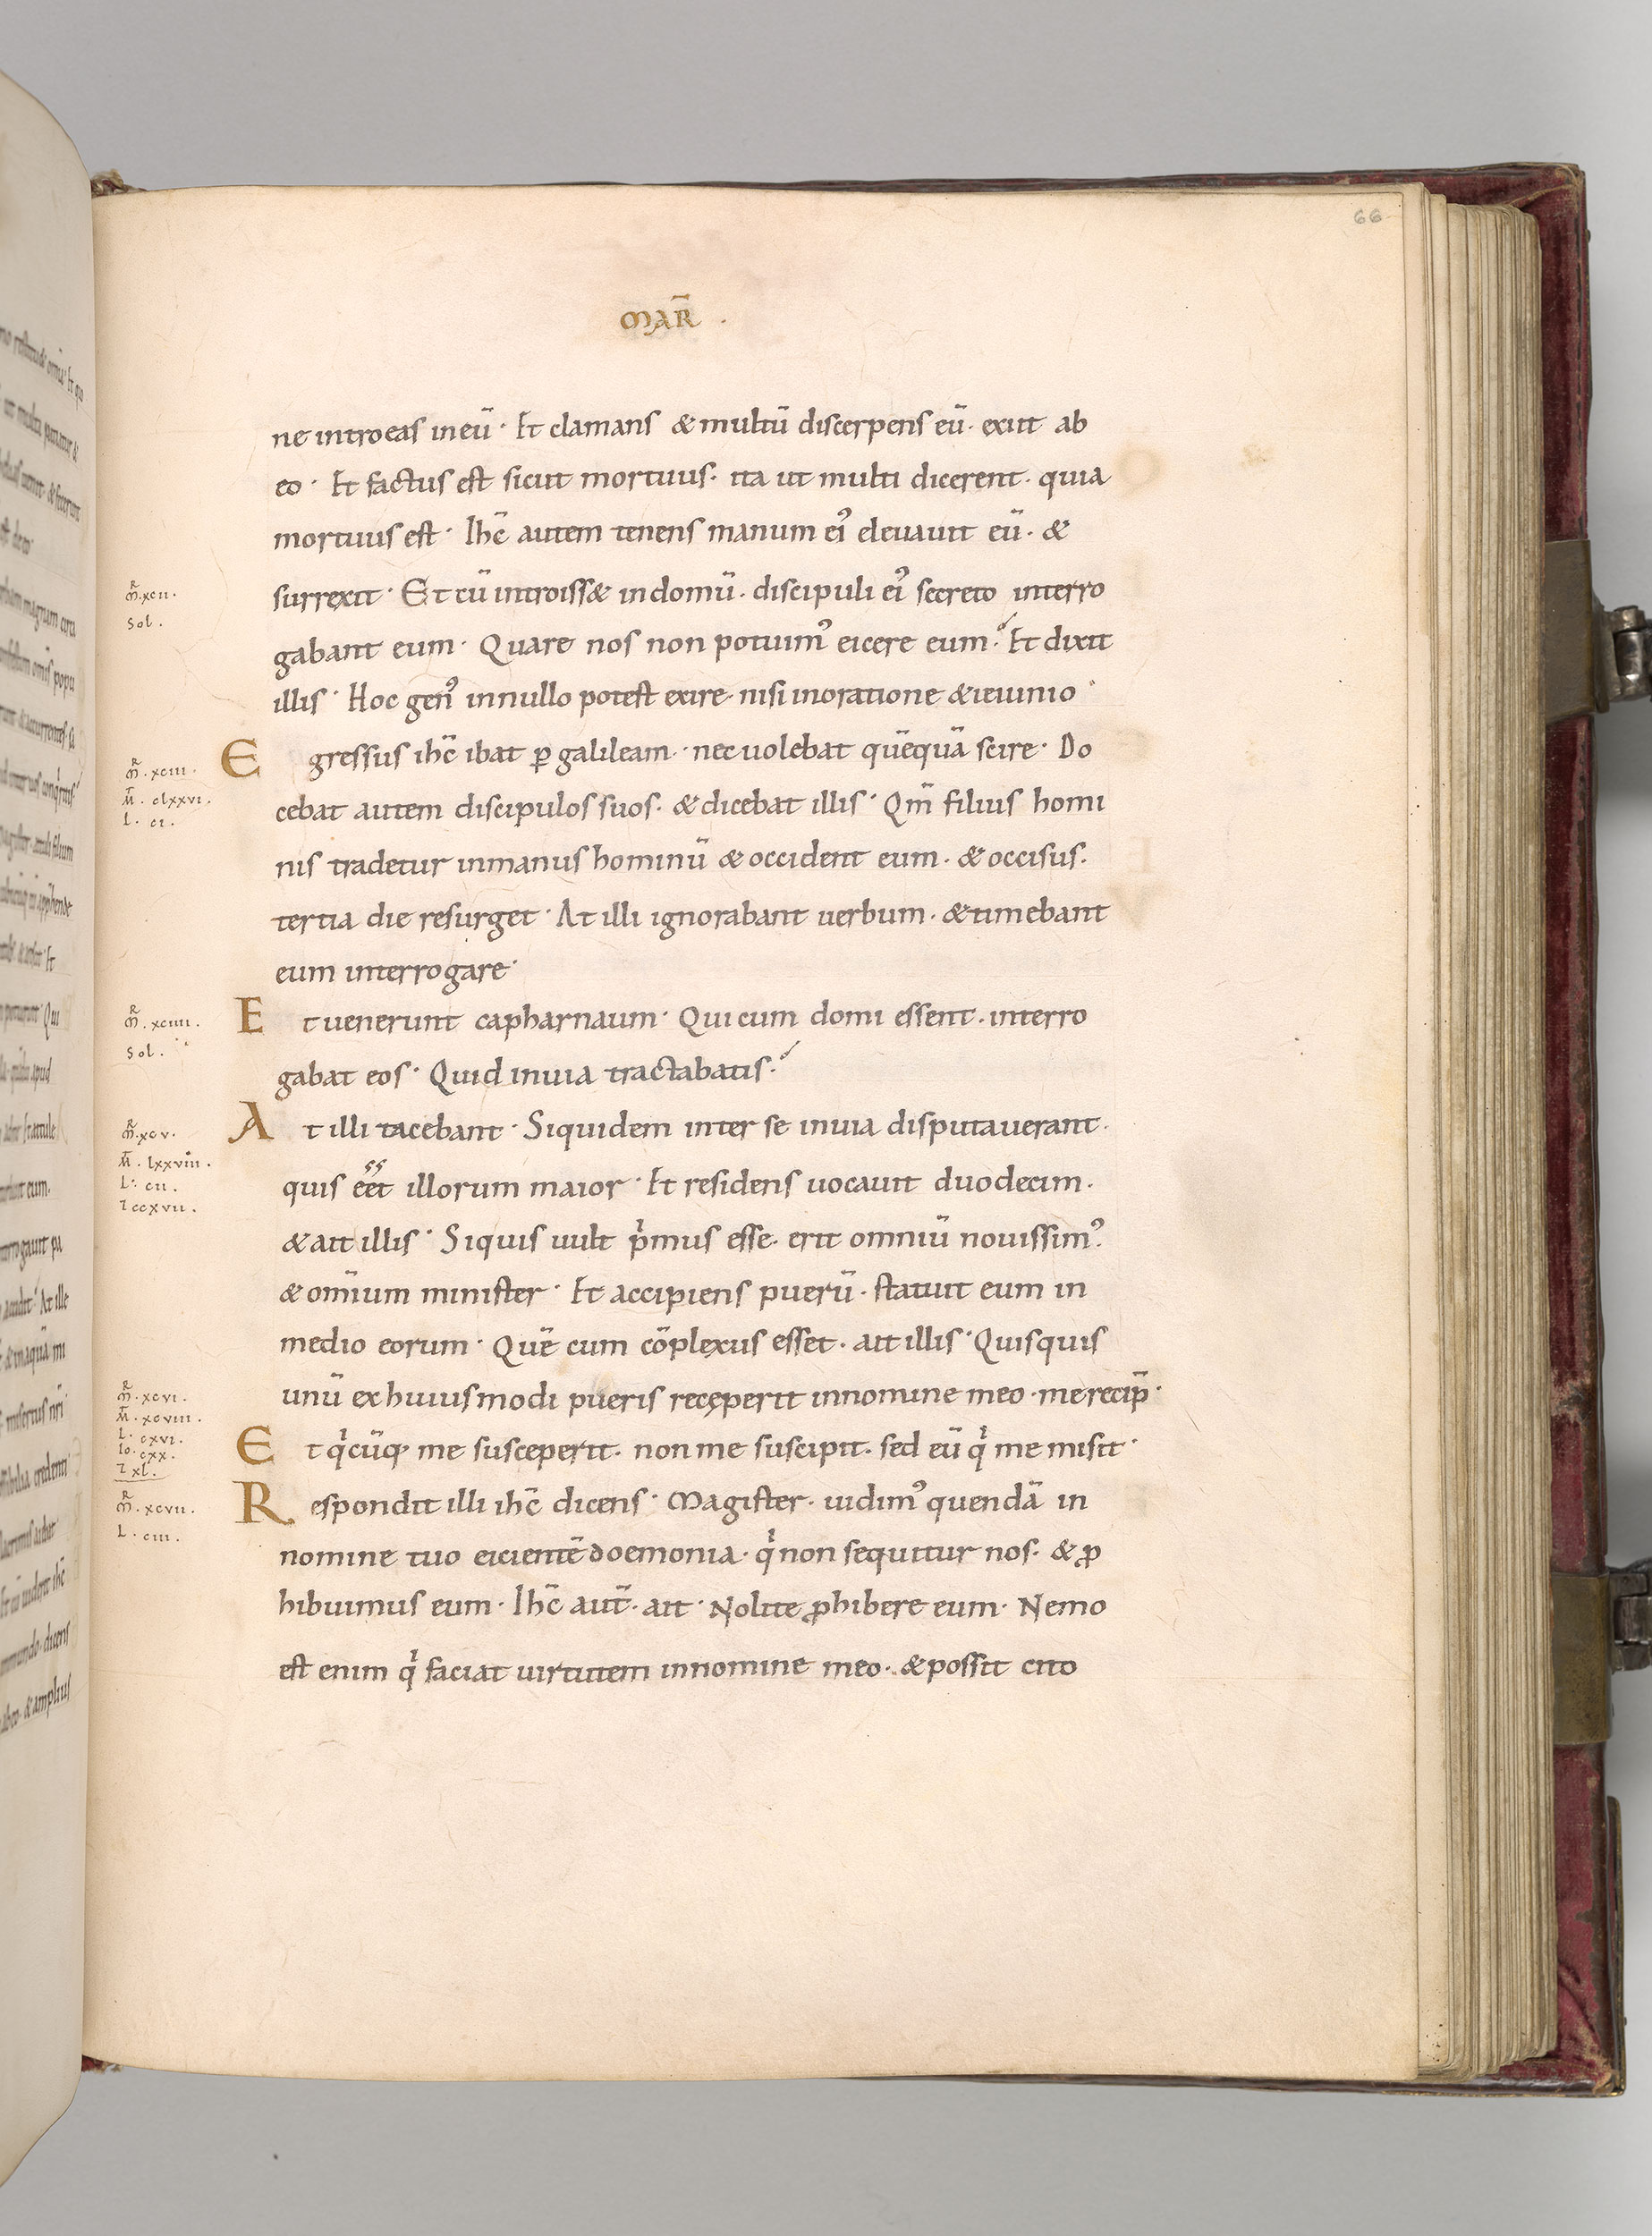 66
MAR̄
ne introeas in eū· Et clamans & multū discerpens eū· exiit ab
eo· Et factus est sicut mortuus· ita ut multi dicerent· quia
mortuus est· Ihc̄ autem tenens manum ei᾽ eleuauit eū· &
m̄R· xcii·
sol·
surrexit· Et cū introiss& in domū· discipuli ei᾽ secreto interro
gabant eum· Quare nos non potuim᾽ eicere eum? Et dixit
illis· Hoc gen᾽ in nullo potest exire nisi in oratione & ieiunio·
m̄R· xciii·
M̄· clxxvi·
L· ci·
Egressus ihc̄ ibat ꝑ galileam· nec uolebat quēquā scire· Do
cebat autem discipulos suos· & dicebat illis· Qm̄ filius homi
nis tradetur in manus hominū & occident eum· & occisus·
tertia die resurget· At illi ignorabant uerbum· & timebant
eum interrogare·
m̄R· xciiii·
sol·
Et uenerunt capharnaum· Qui cum domi essent· interro
gabat eos· Quid in uia tractabatis?
m̄R· xcv·
M̄· lxxviii·
L· cii·
⁊ ccxvii·
At illi tacebant· Siquidem inter se in uia disputauerant·
quis eēt illorum maior· Et residens uocauit duodecim·
& ait illis· Siquis uult pͥmus esse· erit omniū nouissim᾽·
& om̄ium minister· Et accipiens puerū· statuit eum in
medio eorum· Quē cum cōplexus esset· ait illis· Quisquis
unū ex huiusmodi pueris recęperit in nomine meo· me recip̄·
m̄R· xcvi·
M̄· xcviii·
L· cxvi·
Io· cxx·
⁊ xl·
Et qͥcūq; me susceperit· non me suscipit· sed eū qͥ me misit·
m̄R· xcvii·
L· ciii·
Respondit illi ihc̄ dicens· Magister· uidim᾽ quendā in
nomine tuo eicientē doemonia· qͥ non sequitur nos· & ꝓ
hibuimus eum· Ihc̄ aut̄· ait· Nolite ꝓhibere eum· Nemo
est enim qͥ faciat uirtutem in nomine meo· & possit cito